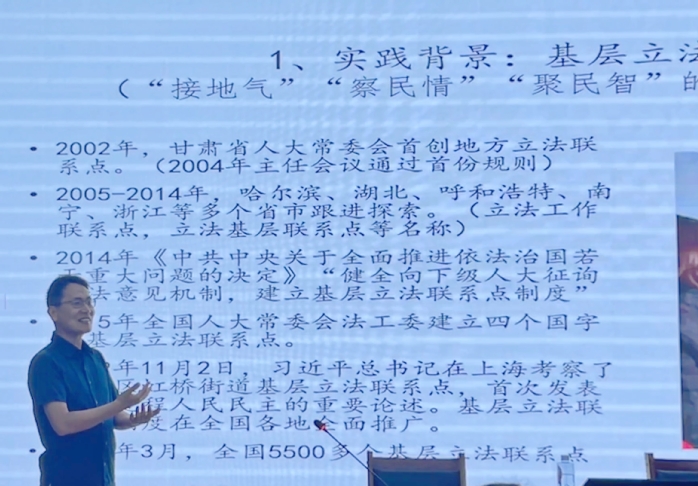 1、实践背景：基层立法
（“接地气”“察民情”“聚民智”的
• 2002年，甘肃省人大常委会首创地方立法联
系点。（2004年主任会议通过首份规则）
• 2005-2014年，哈尔滨、湖北、呼和浩特、南
宁、浙江等多个省市跟进探索。（立法工作
联系点，立法基层联系点等名称）
• 2014年《中共中央关于全面推进依法治国若
重大问题的决定》“健全向下级人大征询
法意见机制，建立基层立法联系点制度”
• 5年全国人大常委会法工委建立四个国字
基层立法联系点。
年11月2日，习近平总书记在上海考察了
虹桥街道基层立法联系点，首次发表
程人民民主的重要论述。基层立法联
度在全国各地全面推广。
• 年3月，全国5500多个基层立法联系点